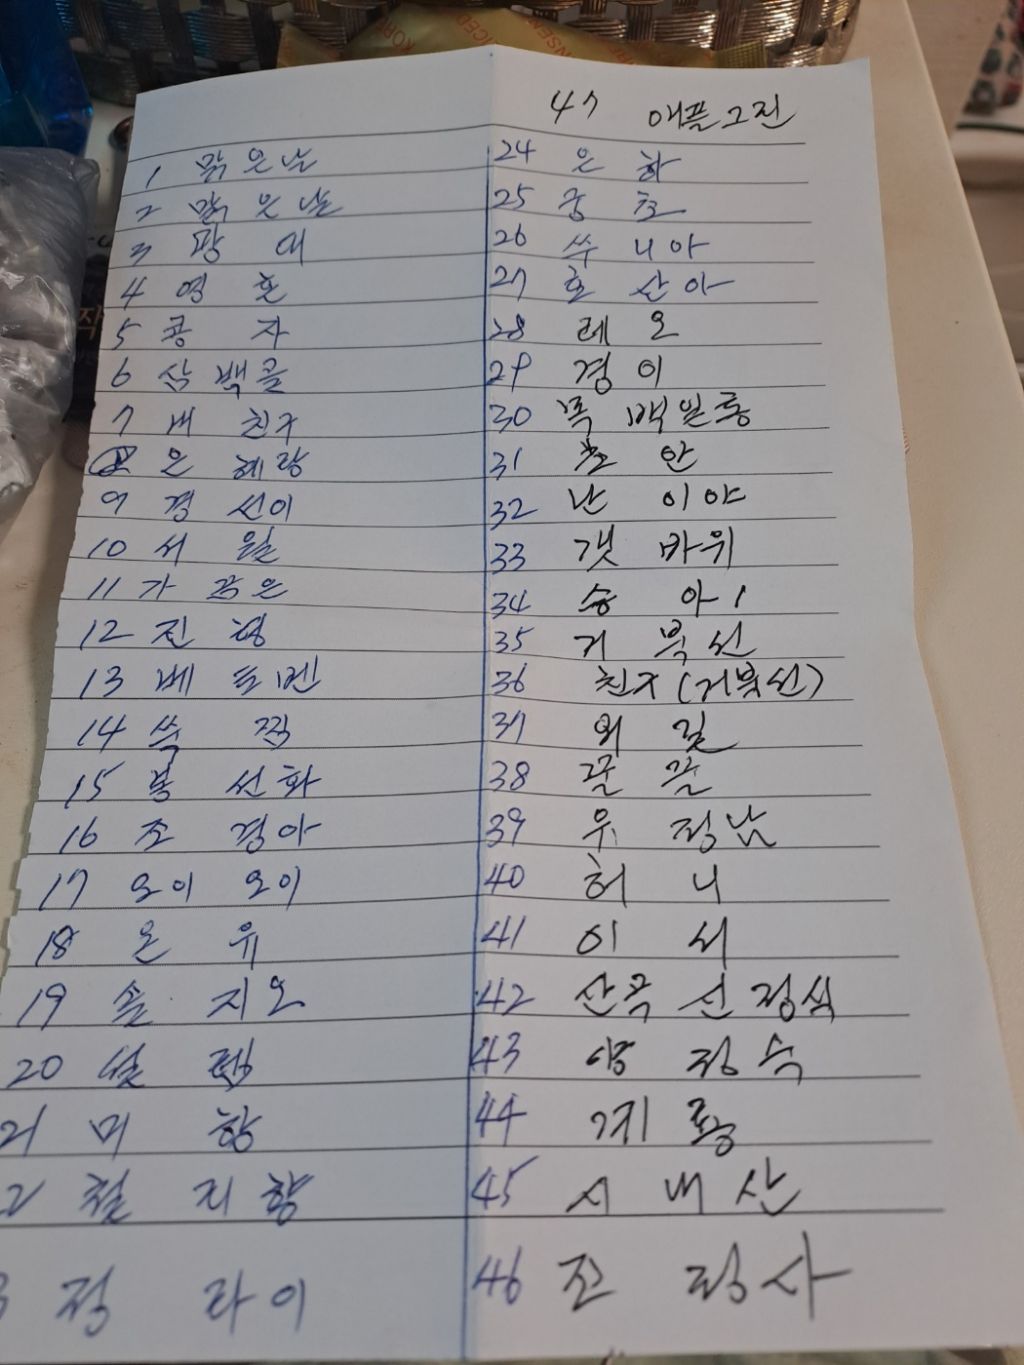 47 애플그린
1 맑은날
2 맑은날
3 팡 애
4 영 훈
5 콩 자
6 삼백클
7 내 친구
8 은 혜랑
9 경 선이
10 서 월
11 가 끔은
12 진 형
13 베 토벤
14 쏙 찍
15 봉 선화
16 조 경아
17 오이 오이
18 온 유
19 솔 지오
20 설
21 미 향
22 철 지향
23 정 라이
24 은 하
25 중 초
26 쑤 니아
27 호 산아
28 레 오
29 경 이
30 폭 백일홍
31 초 안
32 난 이야
33 갯 바위
34 송 아1
35 거 북선
36 친구(거북선)
37 외 길
38 끝
39 우 정남
40 허 니
41 이 서
42 산곡 신정식
43 양 정숙
44 계룡
45 시 내산
46 조 정사